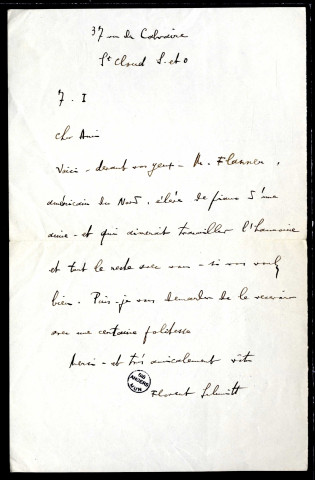 37 rue du Calvaire
St Cloud S-et-O
7. I
Cher Ami
Voici - devant vos yeux - M. Flanner,
américain du Nord, élève de piano d'une
amie - et qui aimerait travailler l'harmonie
et tout le reste avec vous - si vous voulez
bien. Puis-je vous demander de le recevoir
avec une certaine politesse
Merci - et très amicalement vôtre
Florent Schmitt
BIB ANGERS